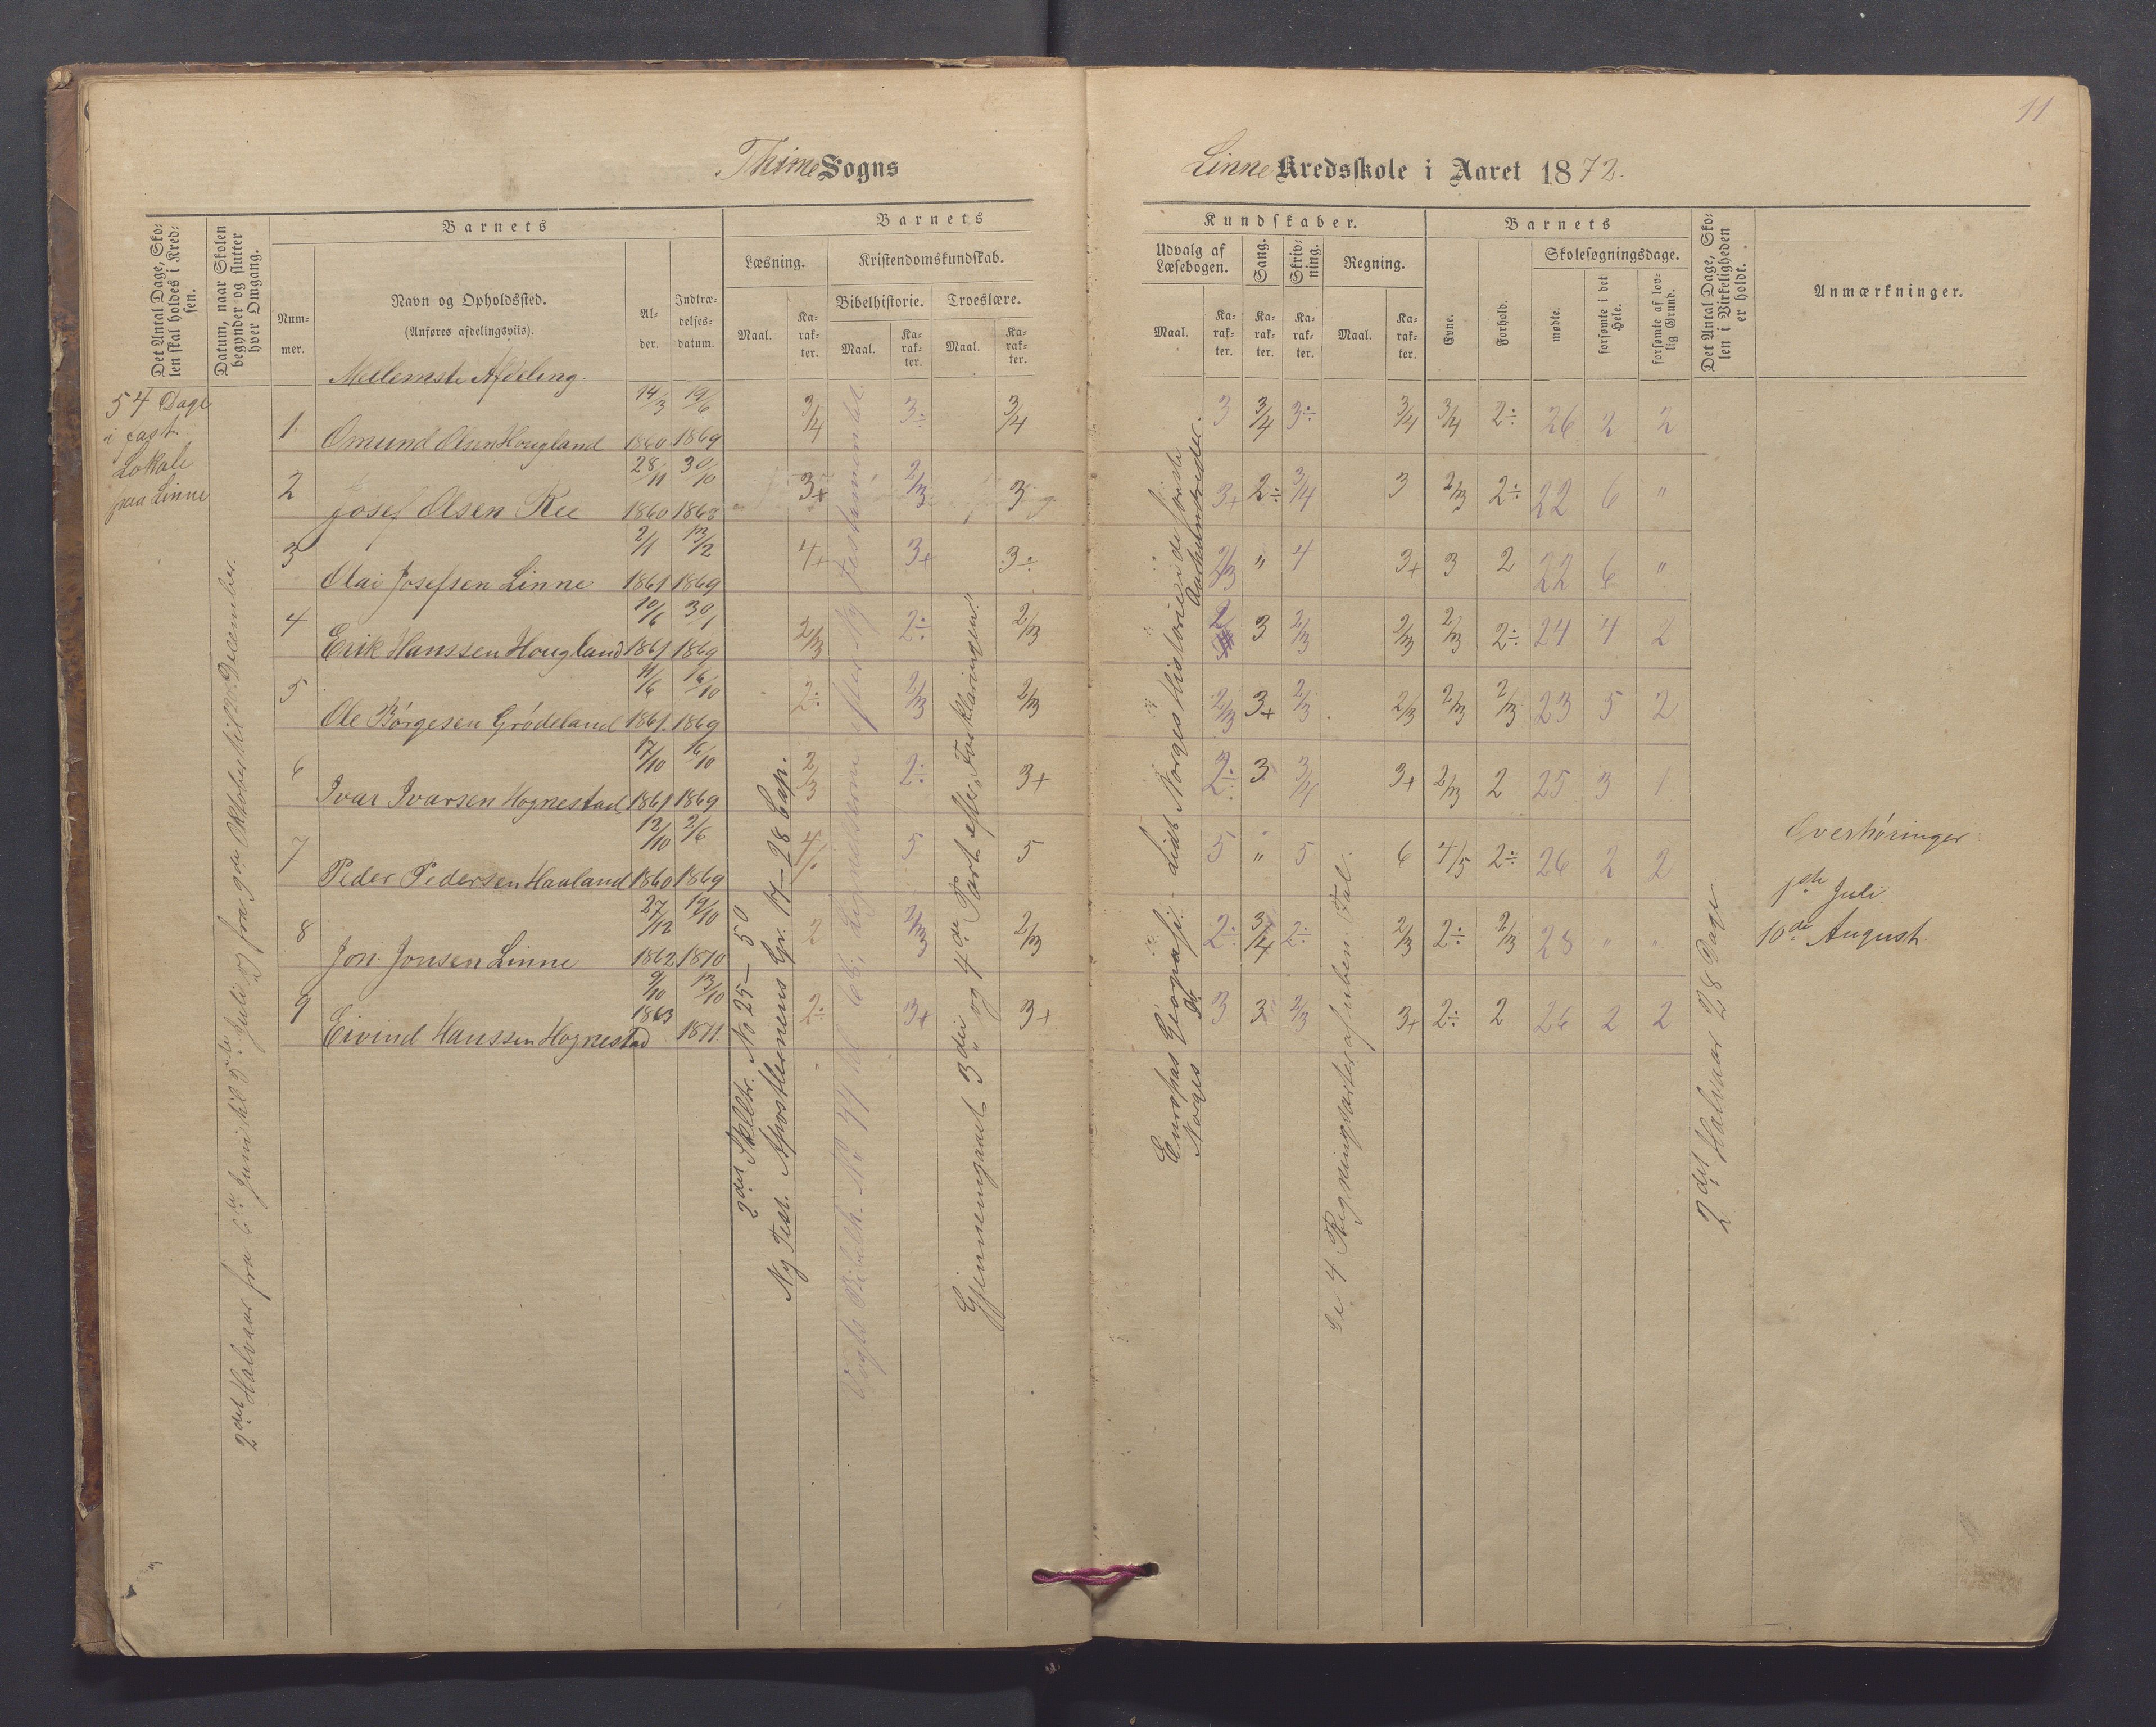 11
Thime Sogns
Linne Kredsskole i Aaret 1872.
Det Antal Dage, Sko-
len skal holdes i Kred-
sen.
Datum, naar Skolen
begynder og slutter
hver Omgang.
Barnets
Num-
mer.
Navn og Opholdssted.
(Anføres afdelingsviis).
Al-
der.
Indtræ-
delses-
datum.
Barnets
Læsning.
Kristendomskundskab.
Bibelhistorie.
Troeslære.
Maal.
Ka-
rak-
ter.
Maal.
Ka-
rak-
ter.
Maal.
Ka-
rak-
ter.
Kundskaber.
Udvalg af
Læsebogen.
Sang.
Skriv-
ning.
Regning.
Maal.
Ka-
rak-
ter.
Ka-
rak-
ter.
Ka-
rak-
ter.
Maal.
Ka-
rak-
ter.
Barnets
Evne.
Forhold.
Skolesøgningsdage.
mødte.
forsømte i det
Hele.
forsømte af lov-
lig Grund.
Det Antal Dage, Sko-
len i Virkeligheden
er holdt.
Anmærkninger.
Mellemste Afdeling.
54 Dage
i fast
Lokale
paa Linne
2det Halvaar fra 6te Juni til 5te Juli og fra 9de Oktober til December.
1. Omund Olsen Hougland 14/3 1860 19/6 1869 3/4 3÷ 3/4 3 3/4 3÷ 3/4 3/4 2÷ 26 2 2
2 Josef Olsen Ree 28/11 1860 30/10 1868 3+ 2/3 3 3+ 2÷ 3/4 3 2/3 2÷ 22 6 "
3 Olai Josefsen Linne 2/1 1861 13/12 1869 4+ 3+ 3÷ 2/3 " 4 3+ 3 2 22 6 "
4 Erik Hanssen Hougland 10/6 1861 30/1 1869 2/3 2÷ 2/3 2 3 2/3 2/3 2/3 2÷ 24 4 2
5 Ole Børgesen Grødeland 11/6 1861. 16/10 1869 2÷ 2/3 2/3 2/3 3+ 2/3 2/3 2/3 2/3 23 5 2
6 Ivar Ivarsen Hognestad 17/10 1861 16/10 1869 2/3 2÷ 3+ 2÷ 3 3/4 3+ 2/3 2 25 3 1
7 Peder Pedersen Haaland 12/10 1860 2/6 1869 5 5 5 " 5 6 4/5 2÷ 26 2 2
8 Jon Jonsen Linne 27/12 1862 19/10 1870 2 2/3 2/3 2÷ 3/4 2÷ 2/3 2÷ 2/3 28 " "
9 Eivind Hanssen Hognestad 9/10 1863 13/10 1871 2÷ 3+ 3+ 3 3 2/3 3+ 2÷ 2 26 2 2
2det Skoletr. No 25–50
Ny Test. Apostlernens Gr. 17–28 Cap.
Vogts Bibelh. No 44 til 66, Lignelserne efter Ny Testamentet
Gjennemgaaet 3die og 4de Part efter "Forklaringen".
Europas Geografi. – Lidt Norges Historie i de første
Noges Do Aarhundreder.
De 4 Regningsarter af uben. Tal.
2det Halvaar 28 Dage
Overhøringer:
1ste Juli
10de August.